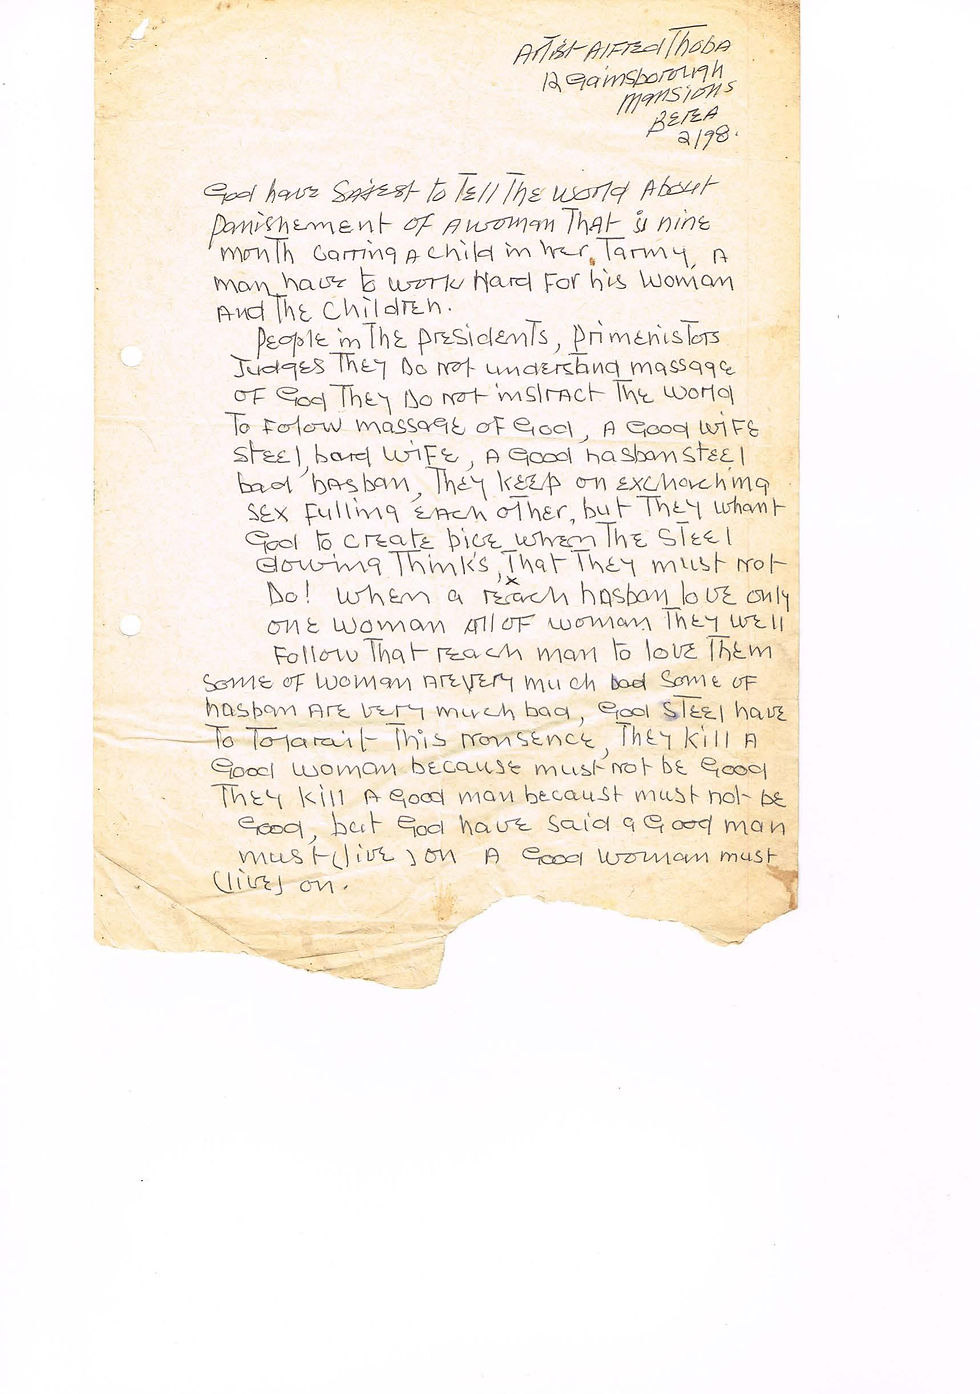 Artist Alfred Thoba
12 Gainsborough
Mansions
BEREA
2198.
God have to Tell The World About
Panishement of A woman That is nine
month Carring A Child in her, Tammy, A
man have to work Hard For his Woman
And The Children.
People in The Presidents, Primenistors
Judges They Do not understand massage
OF God They Do not instract The World
To Folow massage of God, A Good WIFE
STEEl bard WIFE, A Good hasban STEEl
bad hasban, They KEEP on excharching
SEX Fulling EACH other, but They whant
God to CREATE pice when The STEEl
dowing Thinks, That They must not
Do! When a reach hasban loVE only
ONE Woman All OF woman They well
Follow That reach man to love Them
SOME OF Woman ARE VERY much bad Some OF
hasban ARE very much bad, God STEEl have
To Tolarait This nonsence, They Kill A
Good woman because must not be Good
They Kill A Good man because must not be
Good, but God have Said a Good man
must (live) on A Good Woman must
(live) on.